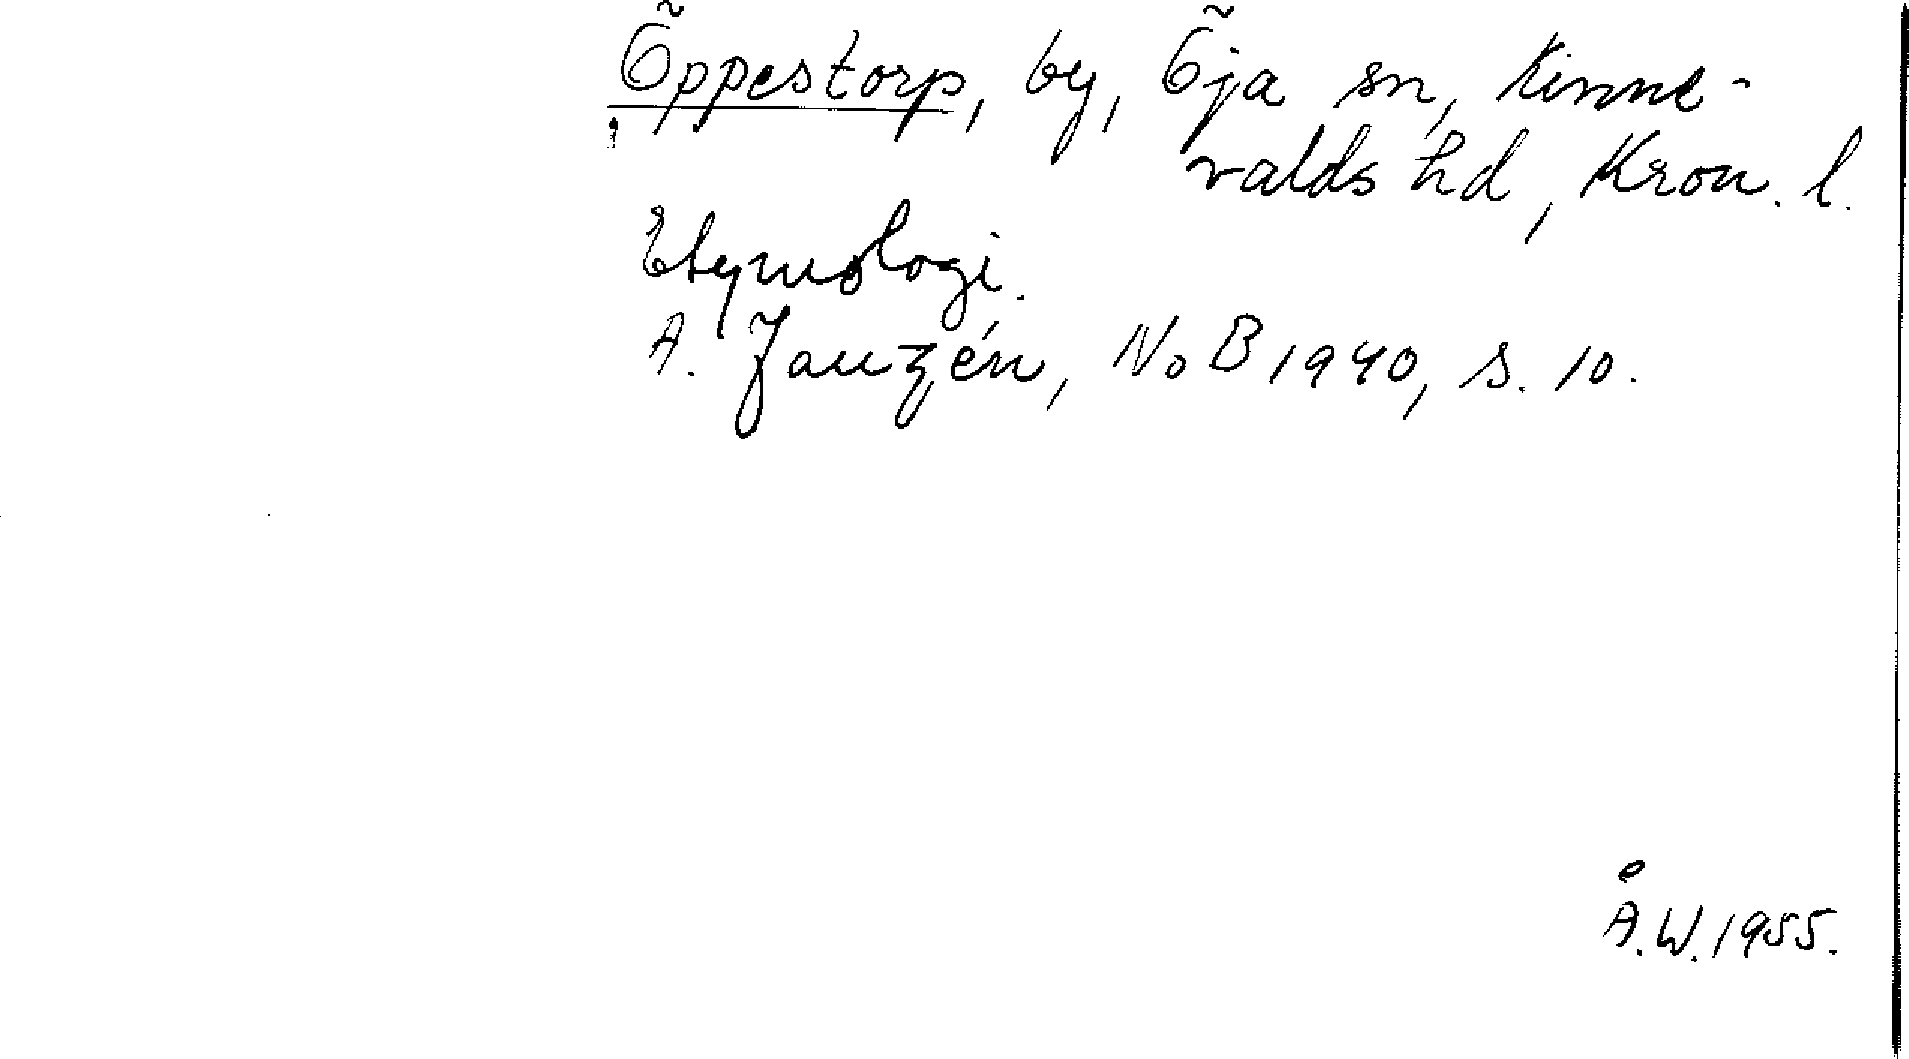 Öppestorp, by, Öja sn, Kinne-
valds hd, Kron. l.
Etymologi.
A. Janzén, NoB 1940, s. 10.
Å.W. 1955.